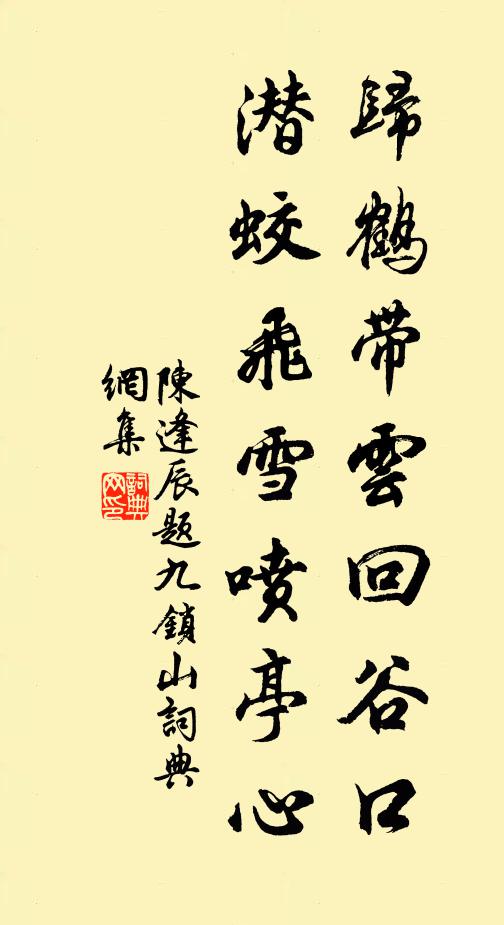 歸鶴帶雲回谷口
潜蛟飛雪噴亭心
陳逢辰題九鎖山詞典
網集
詞典網印